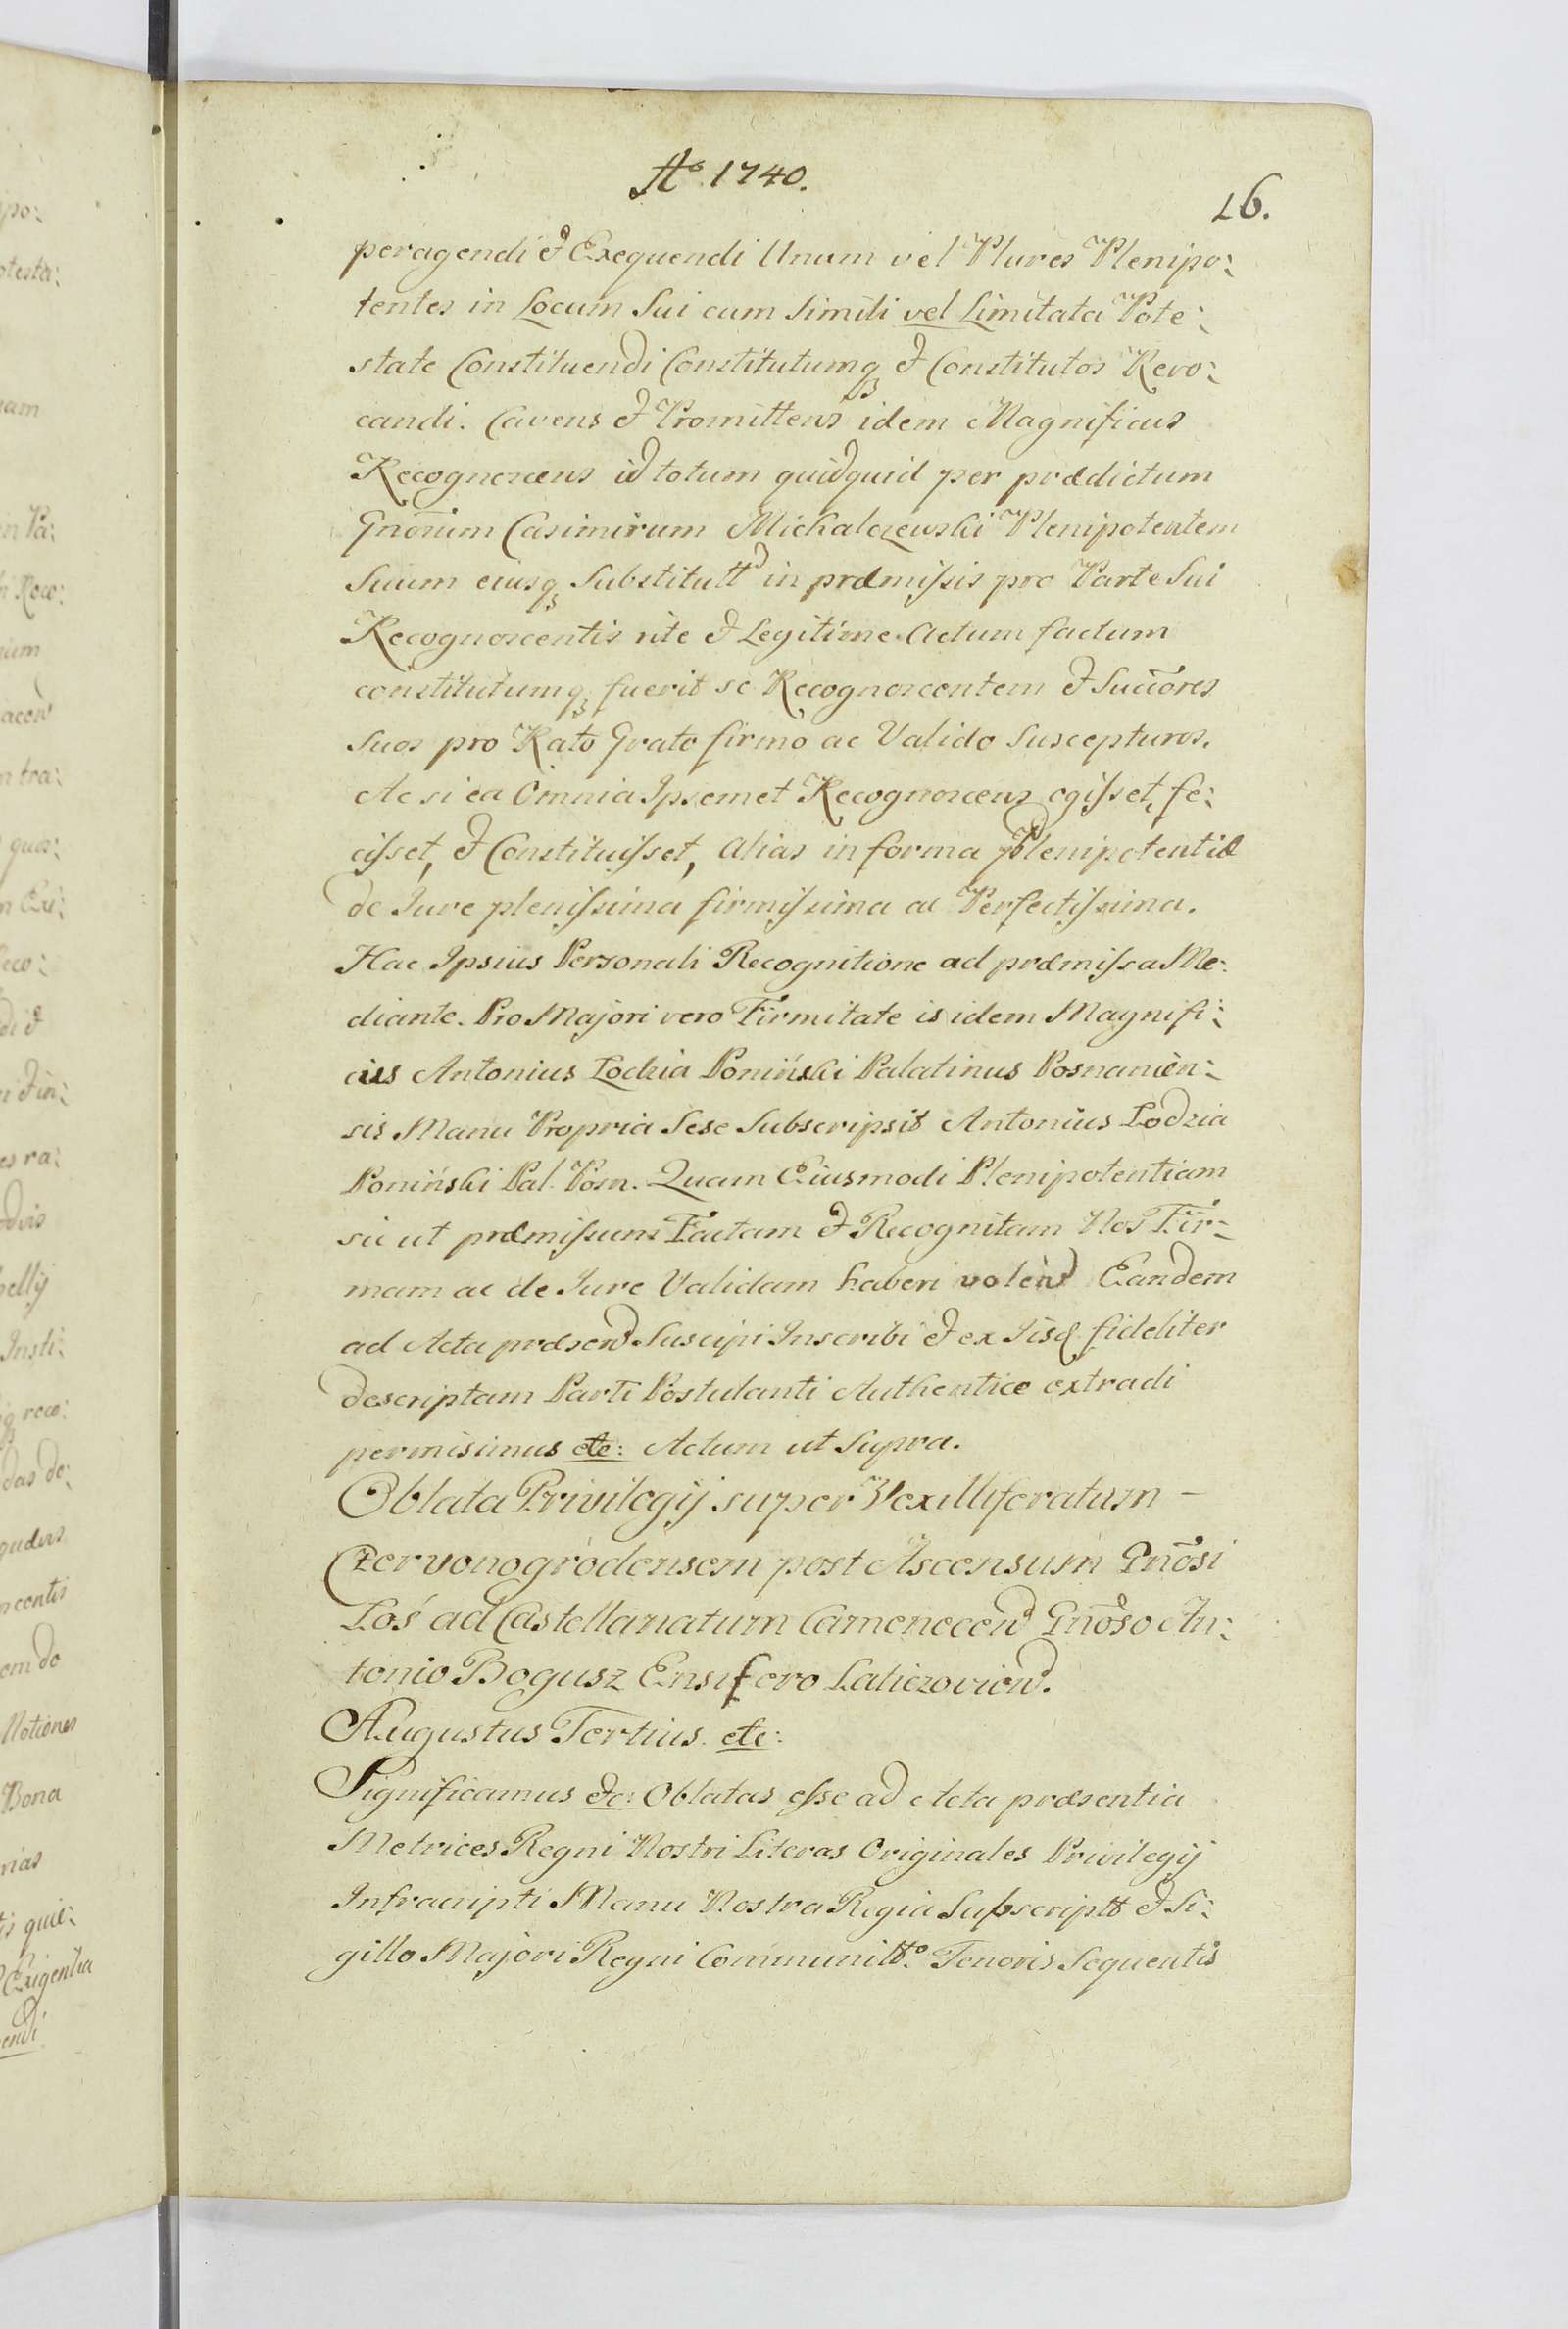 Aº 1740.
26.
peragendi & Exequendi Unum vel Plures Plenipo:
tentes in Locum Sui cum Simili vel Limitata Pote:
state Constituendi Constitutumq₃ & Constitutos Revo:
candi. Cavens & Promittens idem Magnificus
Recognoscens id totum quidquid per prædictum
Gnõrum Casimirum Michalczewski Plenipotentem
Suum eiusq₃ Substitutt in præmissis pro Parte Sui
Recognoscentis rite & Legitime Actum factum
constitutumq₃ fuerit se Recognoscentem & Succõres
Suos pro Rato Grato firmo ac Valido Suscepturos.
Ac si ea Omnia Ipsemet Recognoscens egisset, fe:
cisset, & Constituisset, alias in forma Plenipotentiæ
de Jure plenissima firmissima ac Perfectissima.
Hac Ipsius Personali Recognitione ad præmissa Me:
diante. Pro Majori vero Firmitate is idem Magnifi:
cus Antonius Lodzia Poniński Palatinus Posnanien:
sis Manu Propria Sese Subscripsit Antonius Lodzia
Poniński Pal. Posn. Quam Eiusmodi Plenipotentiam
sic ut præmissum Factam & Recognitam Nos Fir:
mam ac de Jure Validam haberi volen Eandem
ad Acta præsen Suscipi Inscribi & ex Iisq fideliter
descriptam Parti Postulanti Authentice extradi
permisimus etc: Actum ut Supra.
Oblata Privilegij super Vexilliferatum –
Czervonogrodensem post Ascensum Gnõsi
Łoś ad Castellanatum Camenecen Gnõso An:
tonio Bogusz Ensifero Laticzovien.
Augustus Tertius. etc:
Significamus &c: Oblatas esse ad Acta præsentia
Metrices Regni Nostri Literas Originales Privilegij
Infrascripti Manu Nostra Regia Subscriptt & Si:
gillo Majori Regni Communitt. Tenoris Sequentis